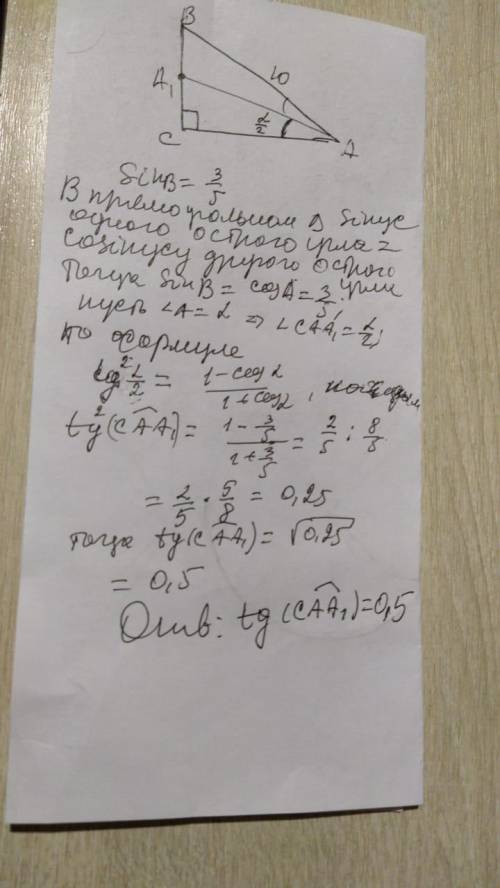 B
A₁
10
α/2
C
A
Sin B = 3/5
В прямоугольном Δ Sinус
одного острого угла =
cosinусу другого острого
угла
Тогда Sin B = cos A = 3/5.
пусть ∠A = α ⇒ ∠CAA₁ = α/2;
по формуле
tg² α/2 = (1 - cos α)/(1 + cos α), находим
tg²(CAA₁) = (1 - 3/5)/(1 + 3/5) = 2/5 : 8/5
= 2/5 · 5/8 = 0,25
тогда tg(CAA₁) = √0,25
= 0,5
Отв: tg(CAA₁) = 0,5